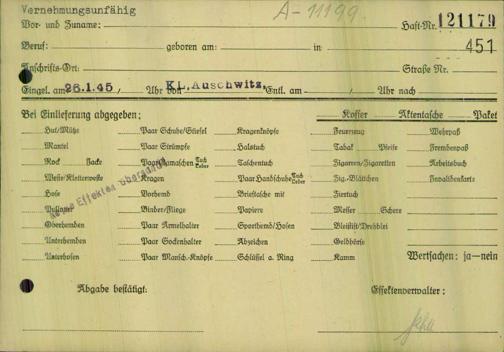 Vernehmungsunfähig
A-11199
Vor- und Zuname: Haft-Nr. 121179
Beruf: geboren am: in 451
Anschrifts-Ort: Straße Nr.
Eingel. am 26.1.45 / Uhr von KL.Auschwitz. Entl. am / Uhr nach
Bei Einlieferung abgegeben: Koffer Aktentasche Paket
Hut/Mütze Paar Schuhe/Stiefel Kragenknöpfe Feuerzeug Wehrpaß
Mantel Paar Strümpfe Halstuch Tabak Pfeife Fremdenpaß
Rock Jacke Paar Gamaschen Tuch Leder Taschentuch Zigarren/Zigaretten Arbeitsbuch
Weste/Kletterweste Kragen Paar Handschuhe Tuch Leder Zig.-Blättchen Invalidenkarte
Hose Vorhemd Brieftasche mit Ziertuch
Pullover Binder/Fliege Papiere Messer Schere
Oberhemden Paar Ärmelhalter Sporthemd/Hosen Bleistift/Drehblei
Unterhemden Paar Sockenhalter Abzeichen Geldbörse
Unterhosen Paar Mansch.-Knöpfe Schlüssel a. Ring Kamm Wertsachen: ja—nein
Keine Effekten überbracht
Abgabe bestätigt: Effektenverwalter: